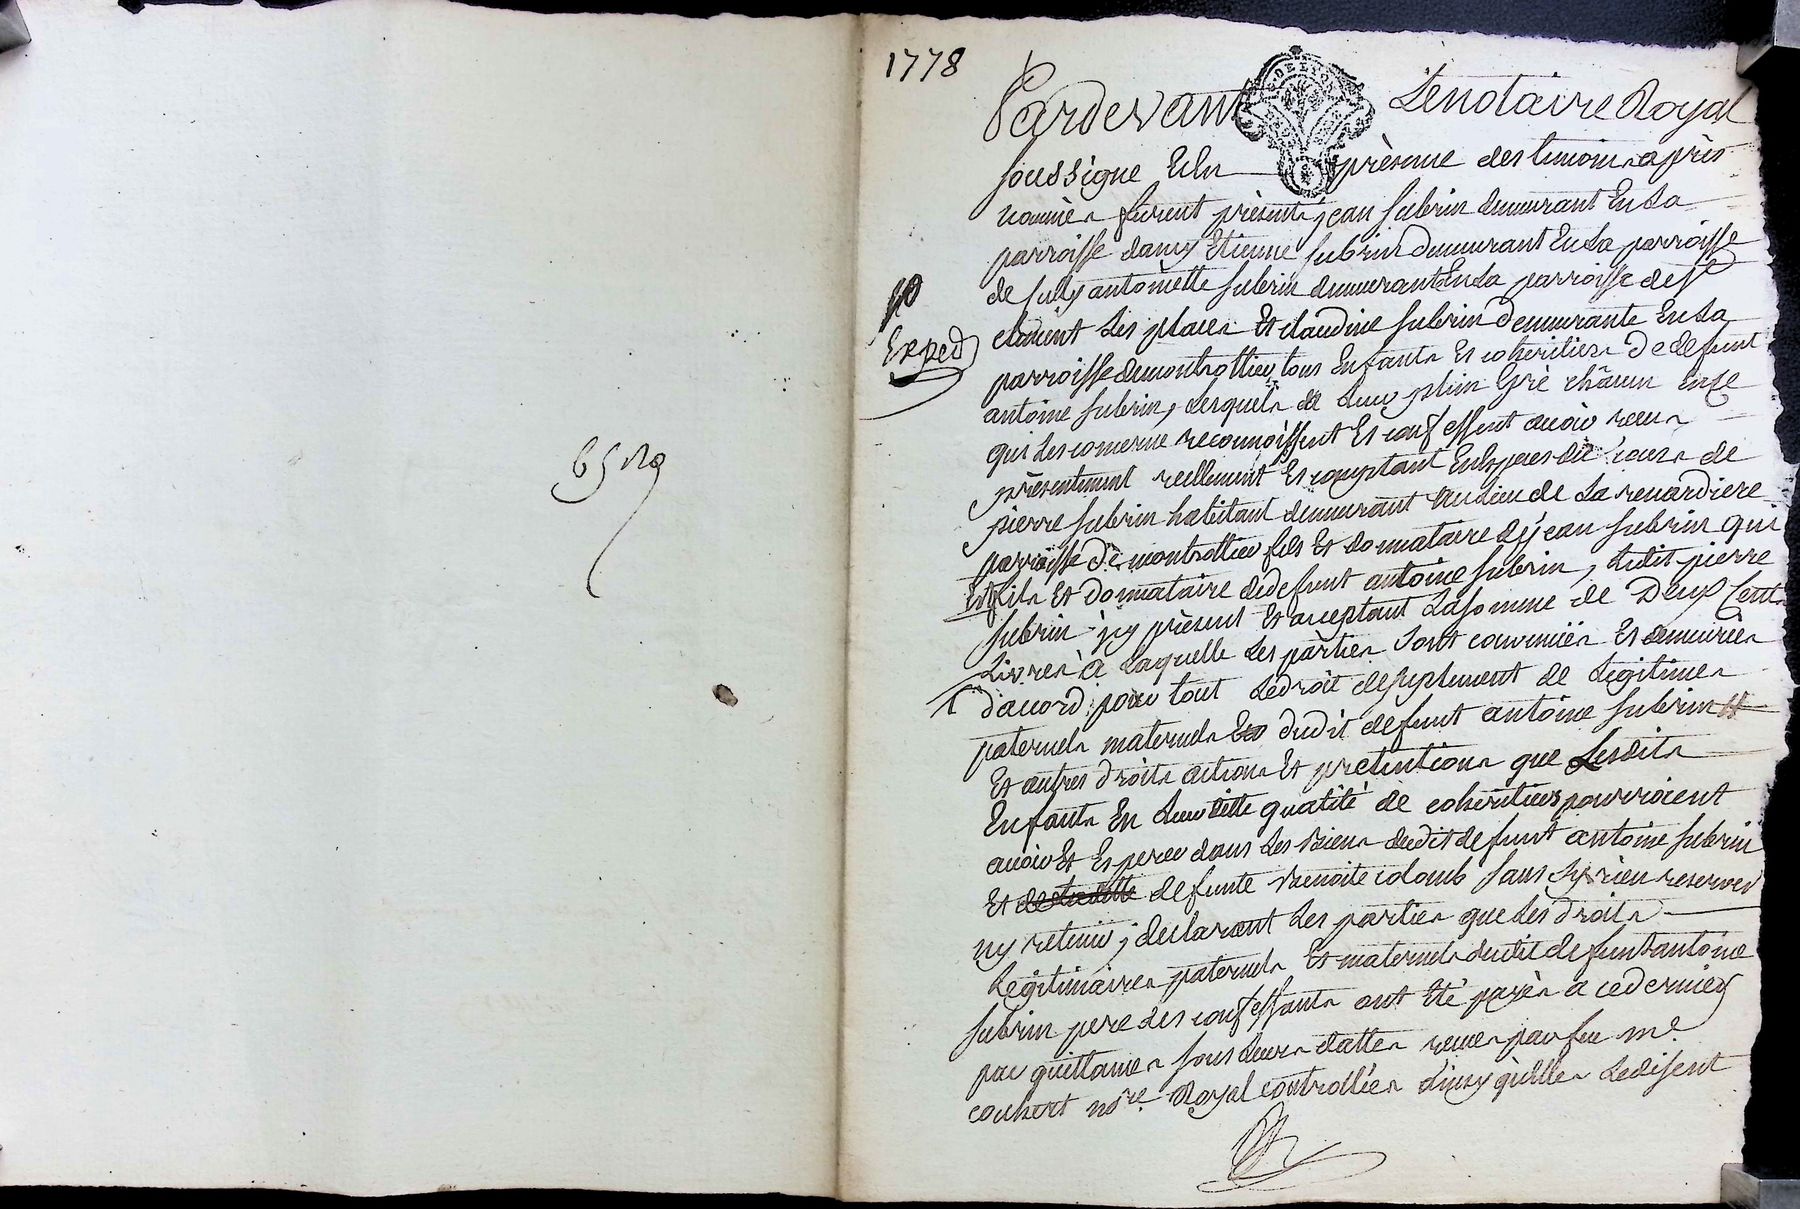 1778
Pardevant Lenotaire Royal
soussigne Et En présence des temoins après
nommés furent présents jean subrin demeurant En La
parroisse dancy Etienne subrin demeurant En La parroisse
de july antoinette subrin demeurant En La parroisse de St
clément Les places Et claudine subrin demeurante En La
parroisse de montrottier tous Enfants Et coheritiers De defunt
antoine subrin, Lesquels de Leur plein Gré chacun En ce
qui Les concerne reconnoissent Et confessent avoir receu
présentement reellement Et comptant En Espèces de cours de
pierre subrin habitant demeurant au Lieu de La renardiere
parroisse de montrottier fils Et donnataire de jean subrin qui
Est fils Et donnataire de defunt antoine subrin, Ledit pierre
subrin icy présent Et acceptant La somme de Deux Cents
Livres à Laquelle Les parties sont convenües Et demeurées
d'accord pour tout Le droit de suplement de Légitimes
paternels maternels dudit defunt antoine subrin
Et autres droits actions Et pretentions que Lesdits
Enfants En Leur ditte qualité de coheritiers pourroient
avoir Et Esperer dans Les Biens dudit defunt antoine subrin
Et de defunte Benoite colomb sans sy rien reserver
ny retenir, declarant Les parties que Les droits
Légitimaires paternels Et maternels dudit defunt antoine
subrin pere des confessants ont Eté payés a ce dernier
par quittances sous Leurs dattes receues par feu me
couhert nore Royal controllées ainsy qu'elles Le disent
Exped